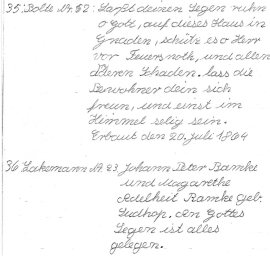 35. Bolte Nr. 52: Laß deinen Segen ruhn
o Gott, auf dieses Haus in
Gnaden, schütz es o Herr
vor Feuersnoth, und allen
Schaden. lass die
Bewohner dein sich
freun, und einst im
Himmel selig sein.
Erbaut den 20. Juli 1864
36. Lakemann Nr. 23 Johann Peter Ramke
und Magarethe
Adelheit Ramke geb.
Sudhop. An Gottes
Segen ist alles
gelegen.